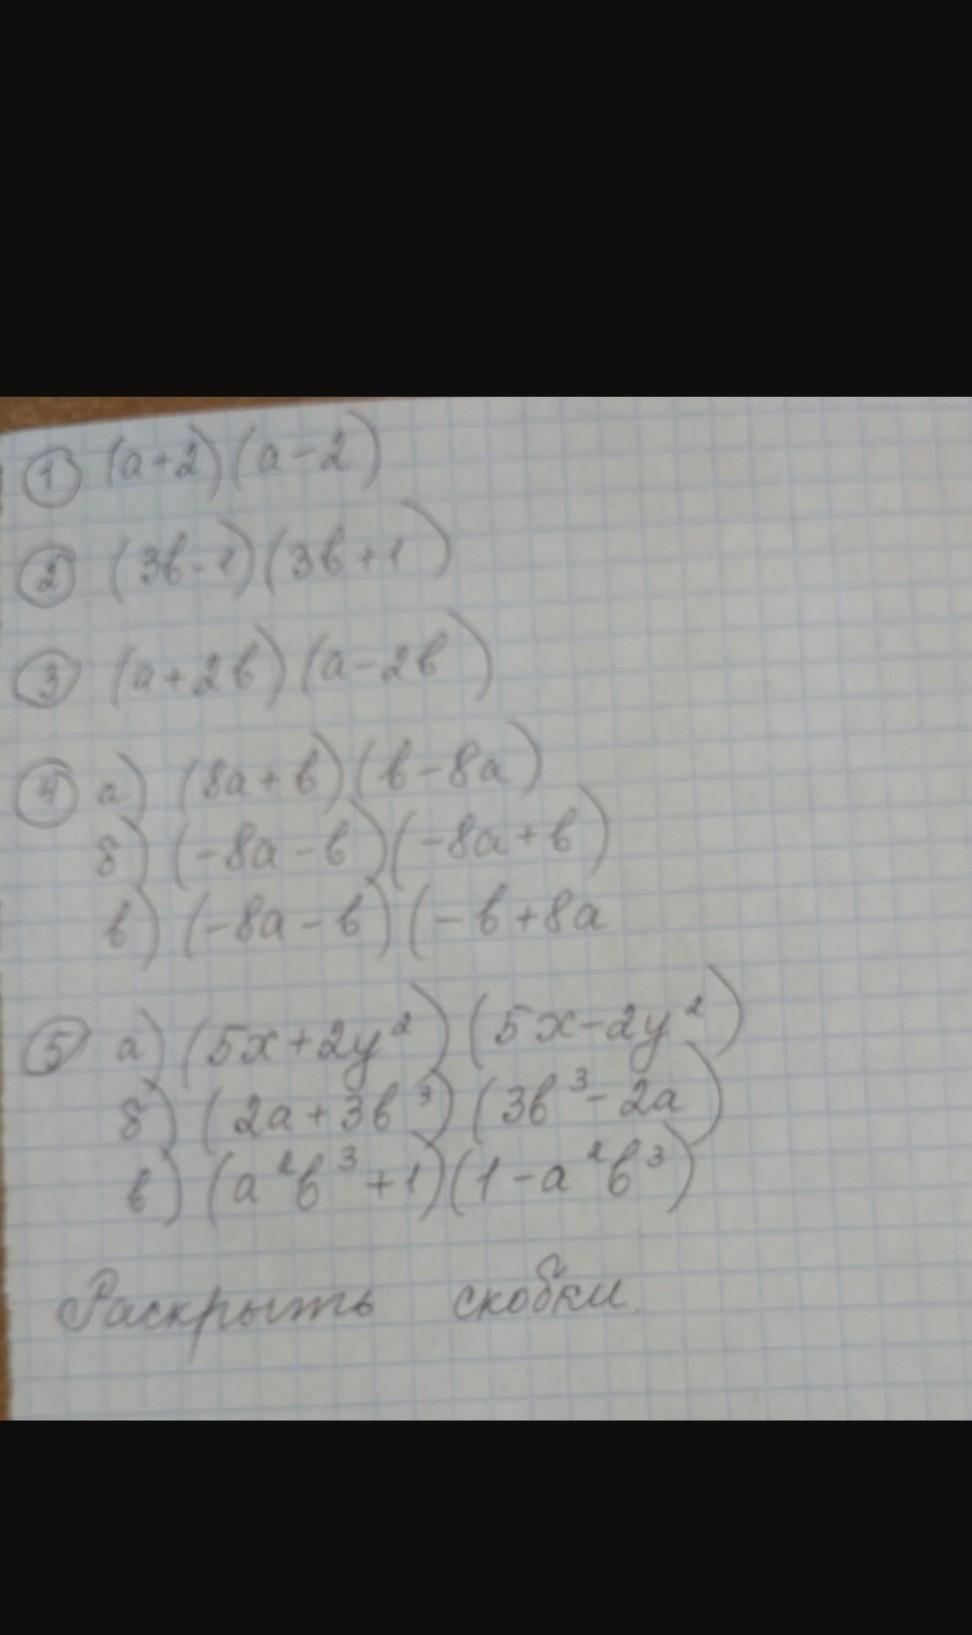 ① (а+2)(а-2)
② (3в-1)(3в+1)
③ (а+2в)(а-2в)
④ а) (8а+в)(в-8а)
б) (-8а-в)(-8а+в)
в) (-8а-в)(-в+8а
⑤ а) (5x+2y²)(5x-2y²)
б) (2а+3в³)(3в³-2а)
в) (а²в³+1)(1-а²в³)
Раскрыть скобки.